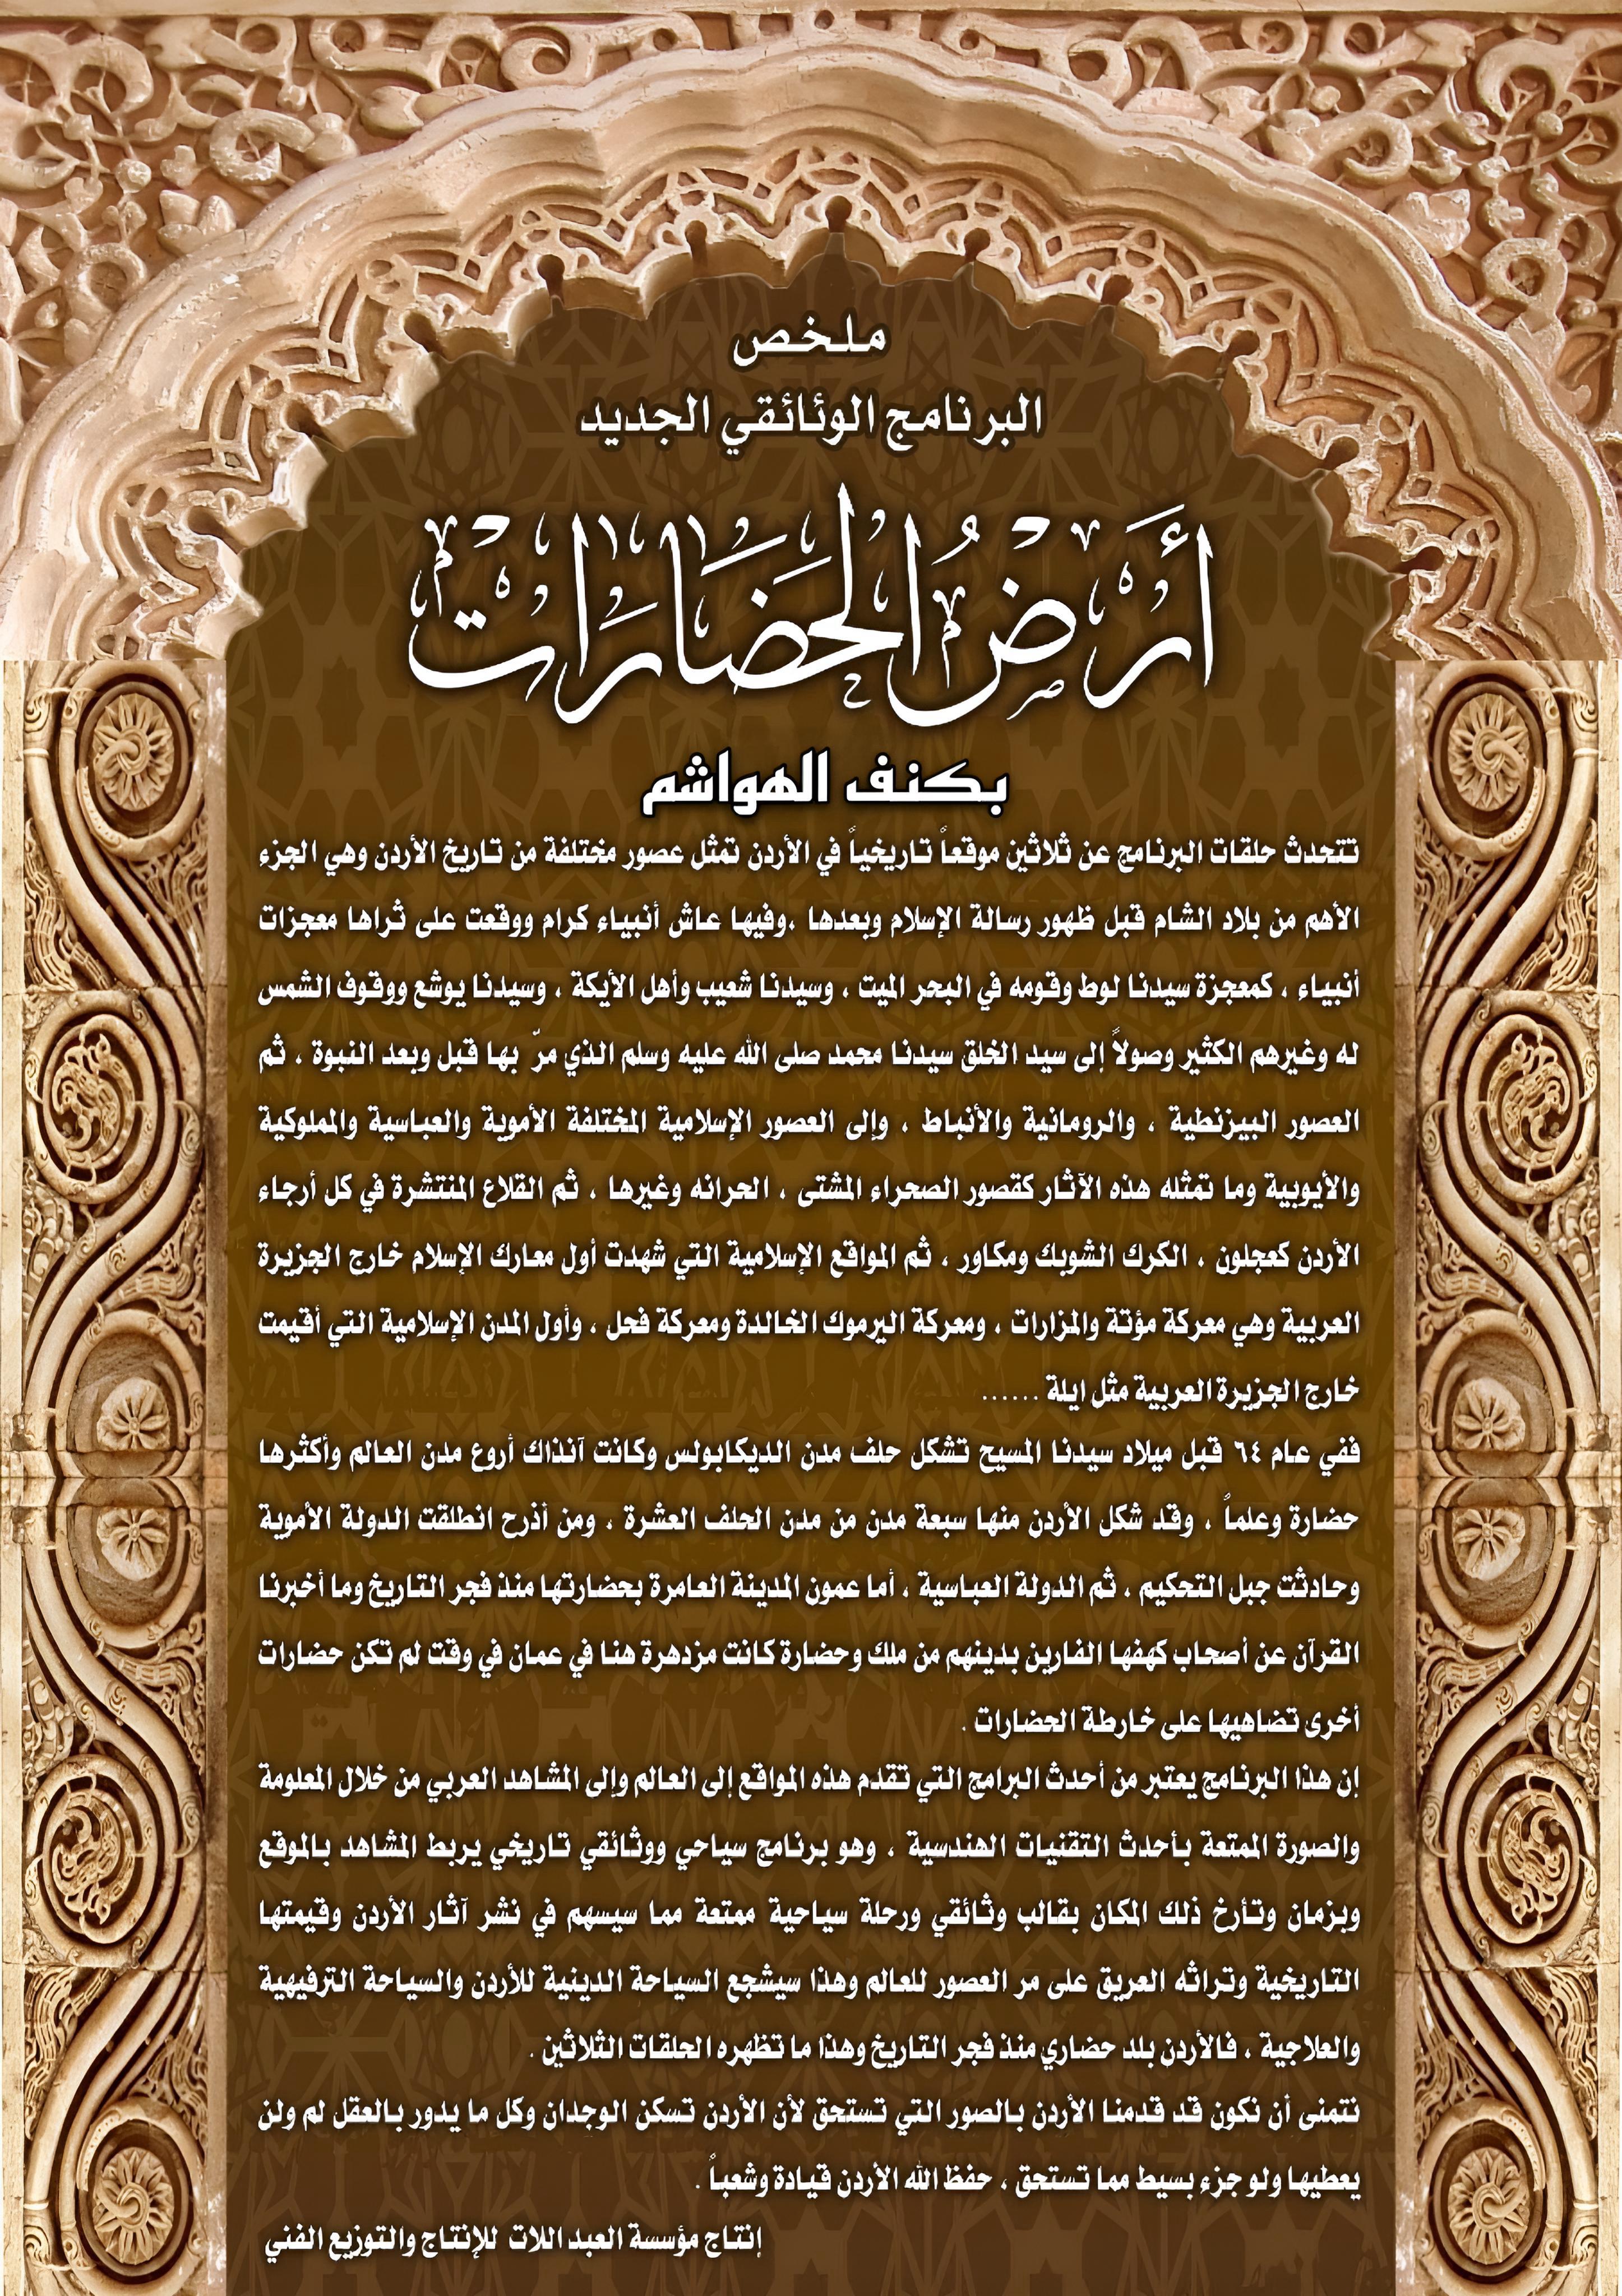 ملخص
البرنامج الوئائقي الجديد
أَرْضُ الحَضَارَات
بكنف الهواشم
تتحدث حلقات البرنامج عن ثلاثين موقعاً تاريخياً في الأردن تمثل عصور مختلفة من تاريخ الأردن وهي الجزء
الأهم من بلاد الشام قبل ظهور رسالة الإسلام وبعدها ،وفيها عاش أنبياء كرام ووقعت على ثراها معجزات
أنبياء ، كمعجزة سيدنا لوط وقومه في البحر الميت ، وسيدنا شعيب وأهل الأيكة ، وسيدنا يوشع ووقوف الشمس
له وغيرهم الكثير وصولاً إلى سيد الخلق سيدنا محمد صلى الله عليه وسلم الذي مرّ بها قبل وبعد النبوة ، ثم
العصور البيزنطية ، والرومانية والأنباط ، وإلى العصور الإسلامية المختلفة الأموية والعباسية والمملوكية
والأيوبية وما تمثله هذه الآثار كقصور الصحراء المشتى ، الحرانه وغيرها ، ثم القلاع المنتشرة في كل أرجاء
الأردن كعجلون ، الكرك الشوبك ومكاور ، ثم المواقع الإسلامية التي شهدت أول معارك الإسلام خارج الجزيرة
العربية وهي معركة مؤتة والمزارات ، ومعركة اليرموك الخالدة ومعركة فحل ، وأول المدن الإسلامية التي أقيمت
خارج الجزيرة العربية مثل ايلة ......
ففي عام ٦٤ قبل ميلاد سيدنا المسيح تشكل حلف مدن الديكابولس وكانت آنذاك أروع مدن العالم وأكثرها
حضارة وعلماً ، وقد شكل الأردن منها سبعة مدن من مدن الحلف العشرة ، ومن أذرح انطلقت الدولة الأموية
وحادثت جبل التحكيم ، ثم الدولة العباسية ، أما عمون المدينة العامرة بحضارتها منذ فجر التاريخ وما أخبرنا
القرآن عن أصحاب كهفها الفارين بدينهم من ملك وحضارة كانت مزدهرة هنا في عمان في وقت لم تكن حضارات
أخرى تضاهيها على خارطة الحضارات .
إن هذا البرنامج يعتبر من أحدث البرامج التي تقدم هذه المواقع إلى العالم وإلى المشاهد العربي من خلال المعلومة
والصورة الممتعة بأحدث التقنيات الهندسية ، وهو برنامج سياحي ووثائقي تاريخي يربط المشاهد بالموقع
وبزمان وتأرخ ذلك المكان بقالب وثائقي ورحلة سياحية ممتعة مما سيسهم في نشر آثار الأردن وقيمتها
التاريخية وتراثه العريق على مر العصور للعالم وهذا سيشجع السياحة الدينية للأردن والسياحة الترفيهية
والعلاجية ، فالأردن بلد حضاري منذ فجر التاريخ وهذا ما تظهره الحلقات الثلاثين .
نتمنى أن نكون قد قدمنا الأردن بالصور التي تستحق لأن الأردن تسكن الوجدان وكل ما يدور بالعقل لم ولن
يعطيها ولو جزء بسيط مما تستحق ، حفظ الله الأردن قيادة وشعباً .
إنتاج مؤسسة العبد اللات للإنتاج والتوزيع الفني